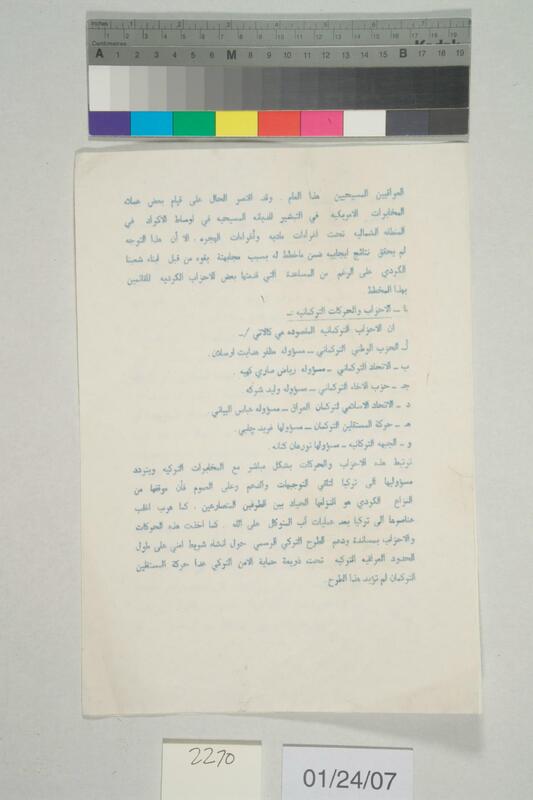 العراقيين المسيحيين هذا العام . وقد اقتصر الحال على قيام بعض عملاء
المخابرات الامريكيه في التبشير للديانه المسيحيه في اوساط الاكراد في
المنطقه الشماليه تحت اغراءات ماديه وأغراءات الهجره . الا أن هذا التوجه
لم يحقق نتائج ايجابيه ضمن ماخطط له بسبب مجابهتة بقوه من قبل ابناء شعبنا
الكردي على الرغم من المساعدة التي قدمتها بعض الاحزاب الكرديه للقائمين
بهذا المخطط
ـ الاحزاب والحركات التركمانيه :ـ
ان الاحزاب التركمانيه المقصوده هي كالاتي /ـ
أـ الحزب الوطني التركماني ـ مسؤوله مظفر عنايت ارسلان .
ب ـ الاتحاد التركماني ـ مسؤوله رياض صاري كهيه .
جـ ـ حزب الاخاء التركماني ـ مسؤوله وليد شركه
د ـ الاتحاد الاسلامي لتركمان العراق ـ مسؤوله عباس البياتي .
هـ ـ حركة المستقلين التركمان ـ مسؤولها فريد چلبي .
و ـ الجبهه التركمانيه ـ مسؤولها تورهان كتانه .
ترتبط هذه الاحزاب والحركات بشكل مباشر مع المخابرات التركيه ويتردد
مسؤوليها الى تركيا لتلقي التوجيهات والدعم وعلى العموم فأن موقفها من
النزاع الكردي هو التزامها الحياد بين الطرفين المتصارعين . كما هرب اغلب
عناصرها الى تركيا بعد عمليات آب المتوكل على الله . كما اخذت هذه الحركات
والاحزاب بمساندة ودعم الطرح التركي الرسمي حول انشاء شريط امني على طول
الحدود العراقيه التركيه تحت ذريعة حماية الامن التركي عدا حركة المستقلين
التركمان لم تؤيد هذا الطرح .
2270
01/24/07